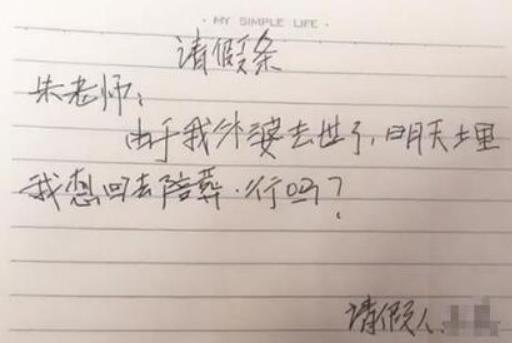 · MY SIMPLE LIFE ·
请假条
朱老师：
由于我外婆去世了，明天土埋
我想回去陪葬.行吗？
请假人.